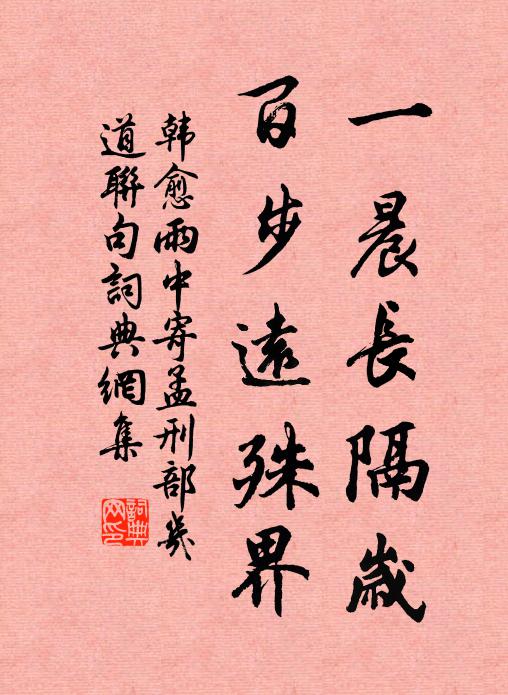 一晨長隔歲
百步遠殊界
韓愈雨中寄孟刑部幾
道聯句詞典網集
詞典網印